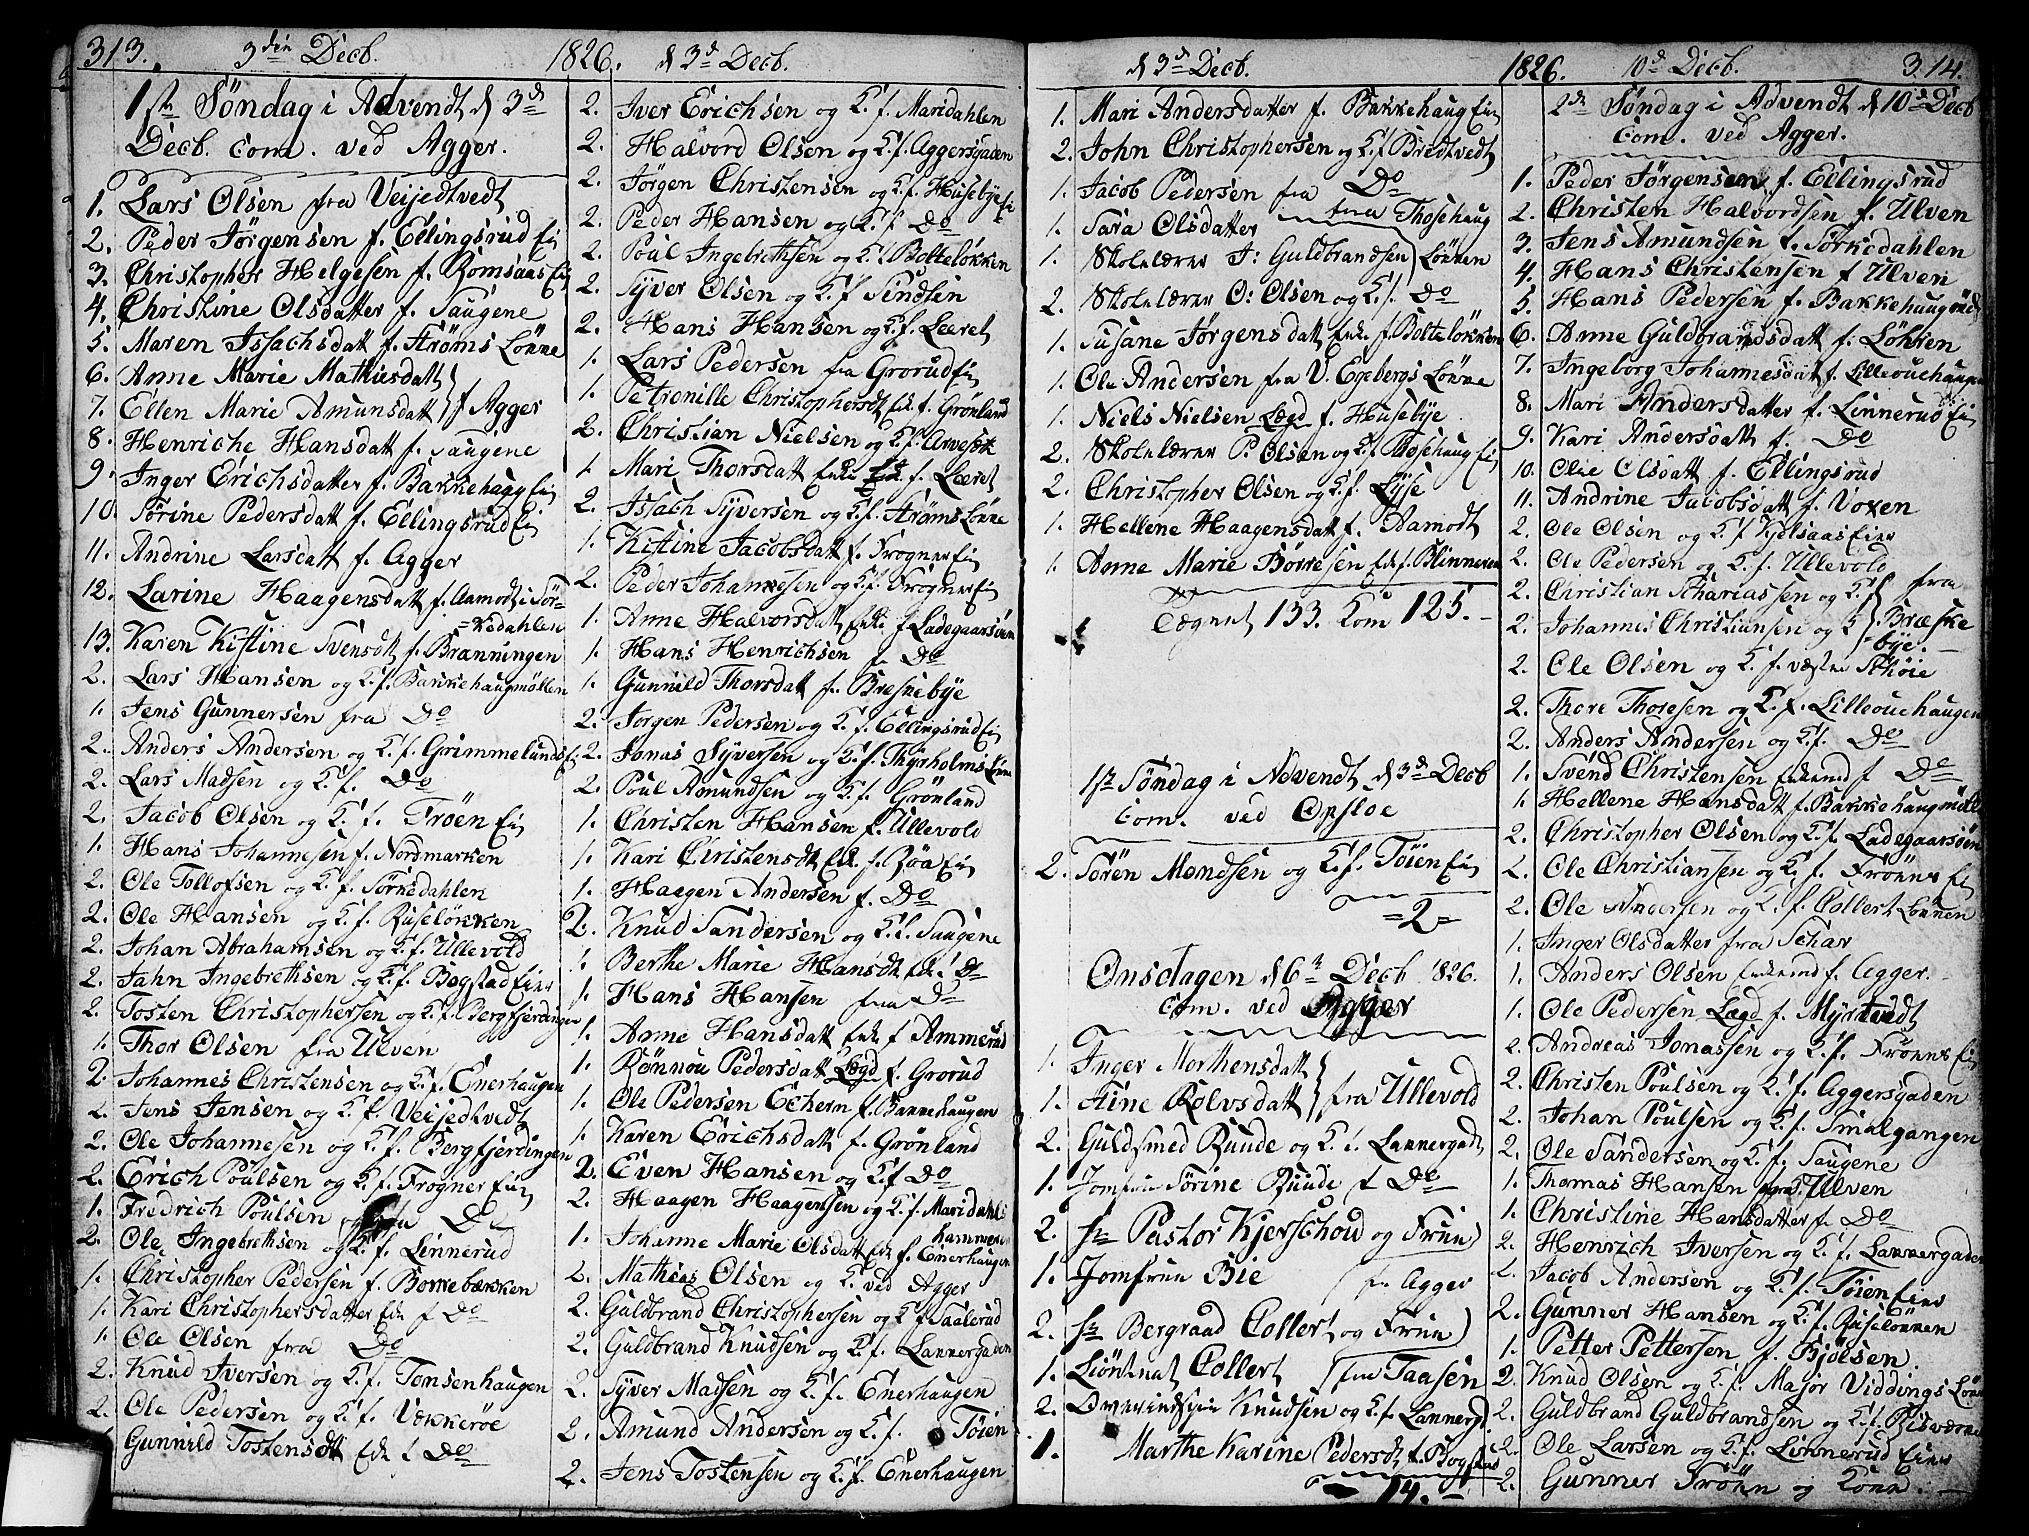 313. 3die Decb. 1826. d 3d Decb.
1ste Söndag i Advendt d 3d
Decb. Com. ved Agger.
1. Lars Olsen fra Veijedtvedt
2. Peder Jörgensen f. Ellingsrud Ei
3. Christopher Helgesen f. Romsaas Ei
4. Christine Olsdatter f. Saugene
5. Maren Issachsdatt f. Ströms Lönne
6. Anne Marie Mathiasdatt
7. Ellen Marie Amunsdatt f Agger
8. Henriche Hansdatt f. Saugene
9. Inger Erichsdatter f. Bakkehaug Ei
10. Sörine Pedersdatt f. Ellingsrud Ei
11. Andrine Larsdatt f. Agger
12. Larine Haagensdatt f. Aamodt i Sör-
=kedahlen
13. Karen Kistine Svensdt f. Brænningen
2. Lars Hansen og K. f. Bakkehaugmöllen
1. Jens Gunnersen fra Do
2. Anders Andersen og K. f. Grimmelunds Ei
2. Lars Madsen og K. f. Do
2. Jacob Olsen og K. f. Fröen Ei
1. Hans Johannesen f. Nordmarken
2. Ole Tollofsen og K. f. Sörkedahlen
2. Ole Hansen og K. f. Ruselökken
2. Johan Abrahamsen og K. f. Ullevold
2. Jahn Ingebrethsen og K. f. Bogstad Eier
2. Tosten Christophersen og K. f. Bergfjerdingen
1. Thor Olsen fra Ulven
2. Johannes Christensen og K. f. Enerhaugen
2. Jens Jensen og K. f. Veijedtvedt
2. Ole Johannesen og K. f. Bergfjerdingen
2. Erich Poulsen og K. f. Frogner Ei
1. Fredrich Poulsen fra Do
2. Ole Ingebrethsen og K. f. Linnerud
1. Christopher Pedersen f. Borrebækken
1. Kari Christophersdatter Ek f Do
1. Ole Olsen fra Do
2. Knud Iversen og K. f. Tonsenhaugen
2. Ole Pedersen og K. f. Vækkeröe
Gunnild Tostensdt Ek f Do
2. Iver Erichsen og K. f. Maridahlen
2. Halvord Olsen og K. f. Aggersgaden
2. Jörgen Christensen og K. f. Husebye
2. Peder Hansen og K. f Do
2. Poul Ingebrethsen og K. f Boltelökken
2. Syver Olsen og K. f
2. Hans Hansen og K. f. Læret
1. Lars Pedersen fra Grorud Ei
1. Petronille Christophersdt Ek f. Grönland
2. Christian Nielsen og K. f.
1. Mari Thorsdatt Enke f. Læret
2. Issach Syversen og K. f. Ströms Lönne
1. Kistine Jacobsdatt f. Frogner Ei
2. Peder Johannesen og K. f. Frogner Ei
1. Anne Halvorsdatt Enke f Ladegaarsöen
1. Hans Henrichsen f. Do
1. Gunnild Thorsdatt f. Breskebye
2. Jörgen Pedersen og K. f. Ellingsrud Ei
2. Jonas Syversen og K. f. Thyrholms Lönne
2. Poul Amundsen og K. f. Grönland
1. Christen Hansen f. Ullevold
1. Kari Christensdt Ek f. Röa Ei
1. Haagen Andersen f. Do
2. Knud Sandersen og K. f. Saugene
1. Berthe Marie Hansdt Ek f Do
1. Hans Hansen fra Do
1. Anne Hansdatt Ek f Ammerud
1. Rönnou Pedersdatt Lægd f. Grorud
1. Ole Pedersen Echern f. Bannehaugen
1. Karen Erichsdatt f. Grönland
2. Even Hansen og K f Do
2. Haagen Haagensen og K. f. Maridahls
hammeren
1. Johanne Marie Olsdatt Ek f. Enerhaugen
2. Mathias Olsen og K. ved Agger
2. Guldbrand Christophersen og K f Saalerud
2. Guldbrand Knudsen og K. f. Lannergaden
2. Syver Madsen og K. f. Enerhaugen
2. Amund Andersen og K. f. Töien
2. Jens Tostensen og K. f. Enerhaugen
d 3d Decb. 1826. 10d Decb. 314.
1. Mari Andersdatter f. Bakkehaug Ei
2. John Christophersen og K. f Bredtvedt
1. Jacob Pedersen fra Do
1. Sara Olsdatter fra Thosehaug
1. Skolelærer J: Guldbrandsen Lönnen
2. Skolelærer O: Olsen og K. f. Do
1. Susane Jörgensdatt Enke f. Boltelökken
1. Ole Andersen fra V. Egebergs Lönne
1. Niels Nielsen Lægd f. Husebye
2. Skolelærer P: Olsen og K. f. Thosehaug Ei
2. Christopher Olsen og K. f. Lyse
1. Hellene Haagensdatt f. Aamodt
1. Anne Marie Börresen Ek f. Blinneren
Tegnet 133. Kom 125.
1ste Söndag i Advendt d 3d Decb
Com. ved Opsloe
2. Sören Mondsen og K. f. Töien Ei
=2=
Onsdagen d 6te Decb 1826.
Com. ved Agger
1. Inger Morthensdatt
1. Stine Rolvsdatt fra Ullevold
2. Guldsmed Ruude og K. f. Lannergad
1. Jomfrue Sörine Ruude f Do
2. Hr Pastor Kjerschow og Frue
1. Jomfrue Bie fr. Agger
2. Hr Bergraad Collert og Frue
1. Liöitnat Collert fra Taasen
2. Knudsen og K. f. Lannergd.
1. Marthe Karine Pedersdt f. Bogstad
14.
2den Söndag i Advendt d 10d Decb
Com. ved Agger.
1. Peder Jörgensen f. Ellingsrud
2. Christen Halvordsen f. Ulven
3. Jens Amundsen f. Sörkedahlen
4. Hans Christensen f Ulven
5. Hans Pedersen f. Bakkehaugmöll
6. Anne Guldbrandsdatt f. Löhren
7. Ingeborg Johannesdatt f. Lilleouchaugen
8. Mari Andersdatter f. Linnerud Ei
9. Kari Andersdatt f. Do
10. Olie Olsdatt f. Ellingsrud
11. Andrine Jacobsdatt f. Voxen
2. Ole Olsen og K. f Kjelsaas Eier
2. Ole Pedersen og K. f. Ullevold
2. Christian Schariassen og K. f fra
2. Johannes Christiansen og K Bræske
bye.
2. Ole Olsen og K. f væstre Schöie
2. Thore Thosesen og K. f. Lilleouchaugen
2. Anders Andersen og K. f. Do
1. Svend Christensen Enkemd f Do
1. Hellene Hansdatt f. Bakkehaugmöll
2. Christopher Olsen og K. f. Ladegaarsöen
2. Ole Christiansen og K. f. Frönne Ei
2. Ole Andersen og K. f. Collert Lönnen
1. Inger Olsdatter fra Schar
1. Anders Olsen Enkemd f. Agger.
1. Ole Pedersen Lægd f. Myrtvedt
2. Andreas Jonassen og K. f. Frönne Ei
2. Christen Poulsen og K. f. Aggersgaden
2. Johan Poulsen og K. f. Smalgangen
2. Ole Sandersen og K. f. Saugene
1. Thomas Hansen fra Ulven
1. Christine Hansdatter f. Do
2. Henrich Iversen og K. f. Lannergaden
2. Jacob Andersen og K. f. Töien Eier
2. Gunner Hansen og K. f. Ruselönnen
1. Petter Pettersen f. Bjölsen.
2. Knud Olsen og K. f. Major Viddings Lönne
2. Guldbrand Guldbrandsen og K. f. Risværne
2. Ole Larsen og K. f. Linnerud Eier
2. Gunner Frönn og Kone.